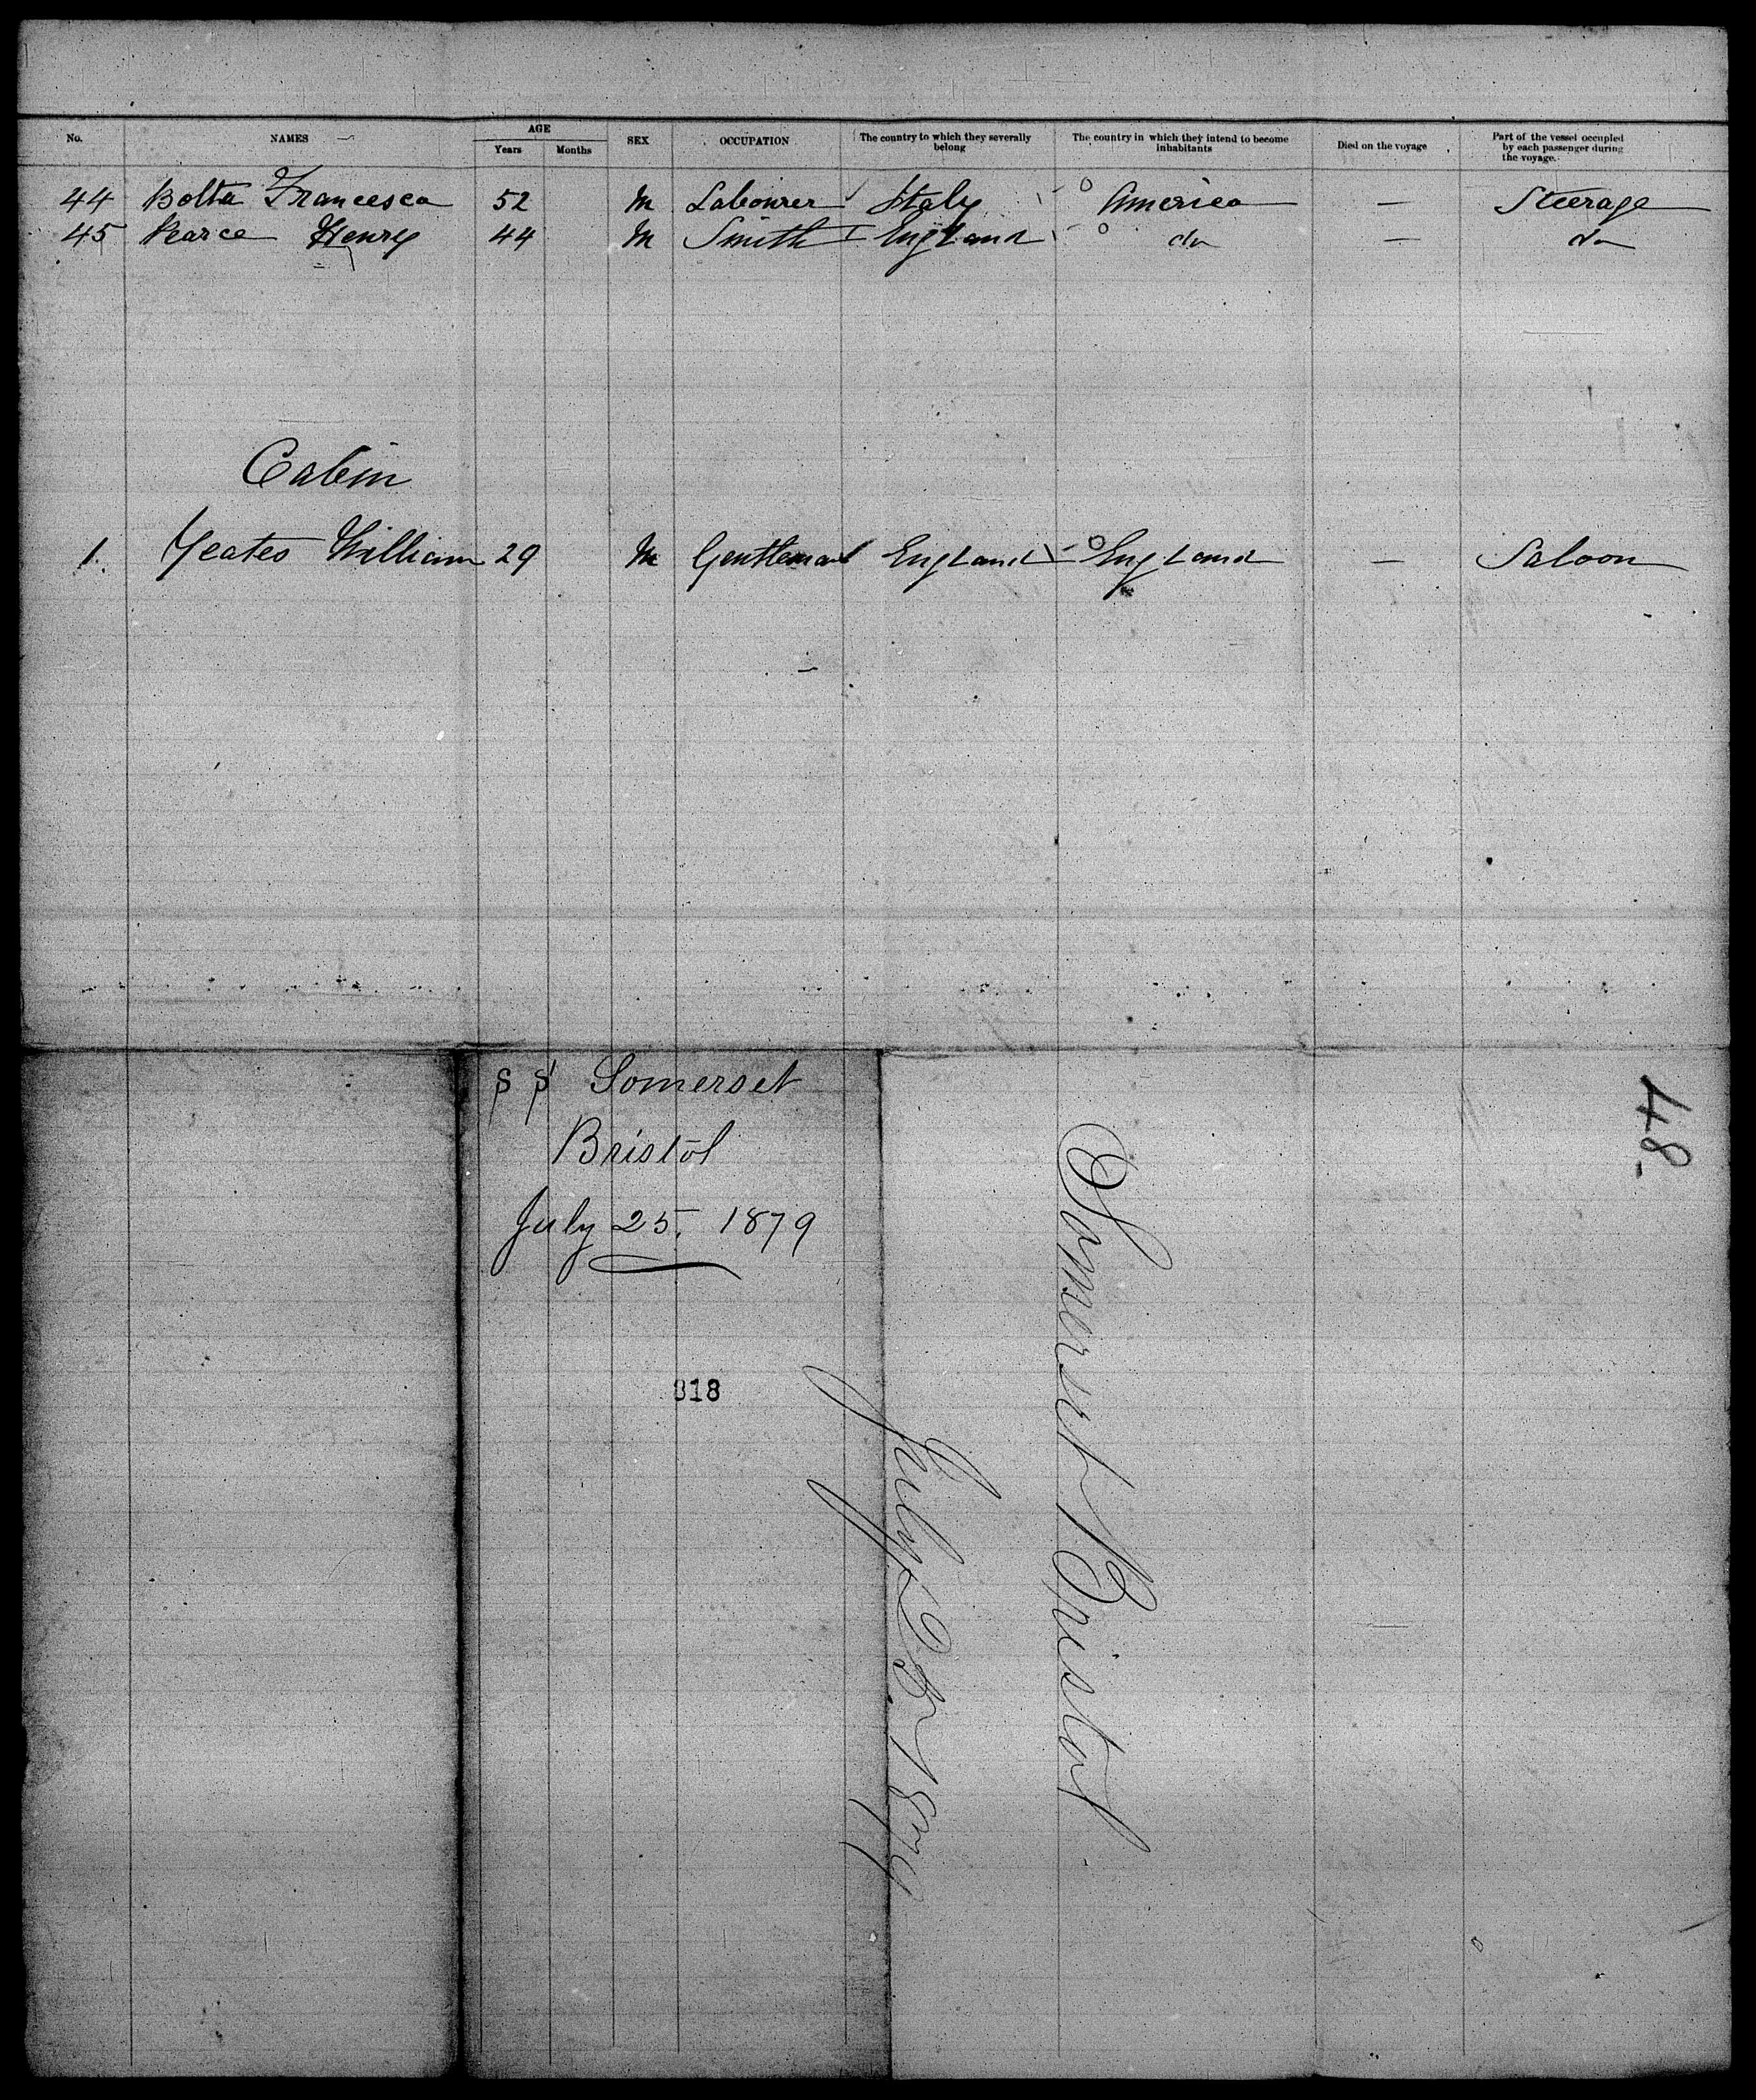 No. NAMES AGE Years Months SEX OCCUPATION The country to which they severally belong The country in which they intend to become inhabitants Died on the voyage Part of the vessel occupied by each passenger during the voyage.
44 Bolta Francesca 52 M Labourer Italy America — Steerage
45 Pearce Henry 44 M Smith England do — do
Cabin
1. Yeates William 29 M Gentleman England England — Saloon
S S Somerset
Bristol
July 25. 1879
818
48-
Somerset Bristol
July 25 1879